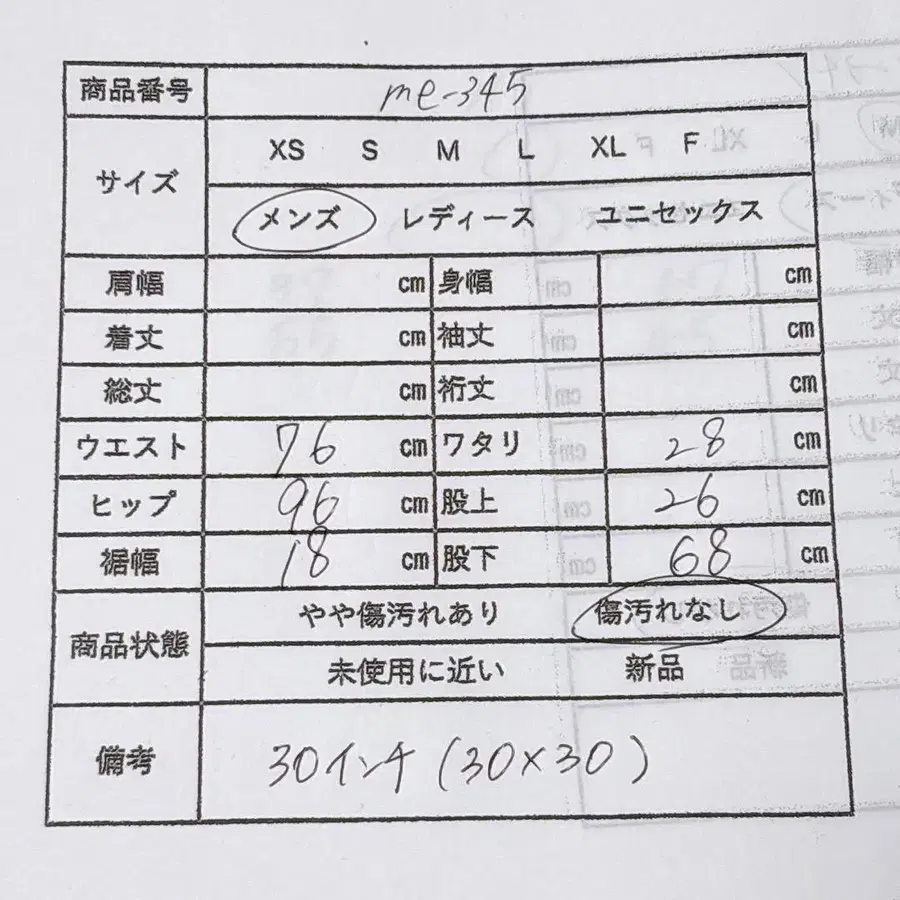 商品番号 me-345
サイズ XS S M L XL F
メンズ レディース ユニセックス
肩幅 cm 身幅 cm
着丈 cm 袖丈 cm
総丈 cm 裄丈 cm
ウエスト 76 cm ワタリ 28 cm
ヒップ 96 cm 股上 26 cm
裾幅 18 cm 股下 68 cm
商品状態 やや傷汚れあり 傷汚れなし
未使用に近い 新品
備考 30インチ (30×30)